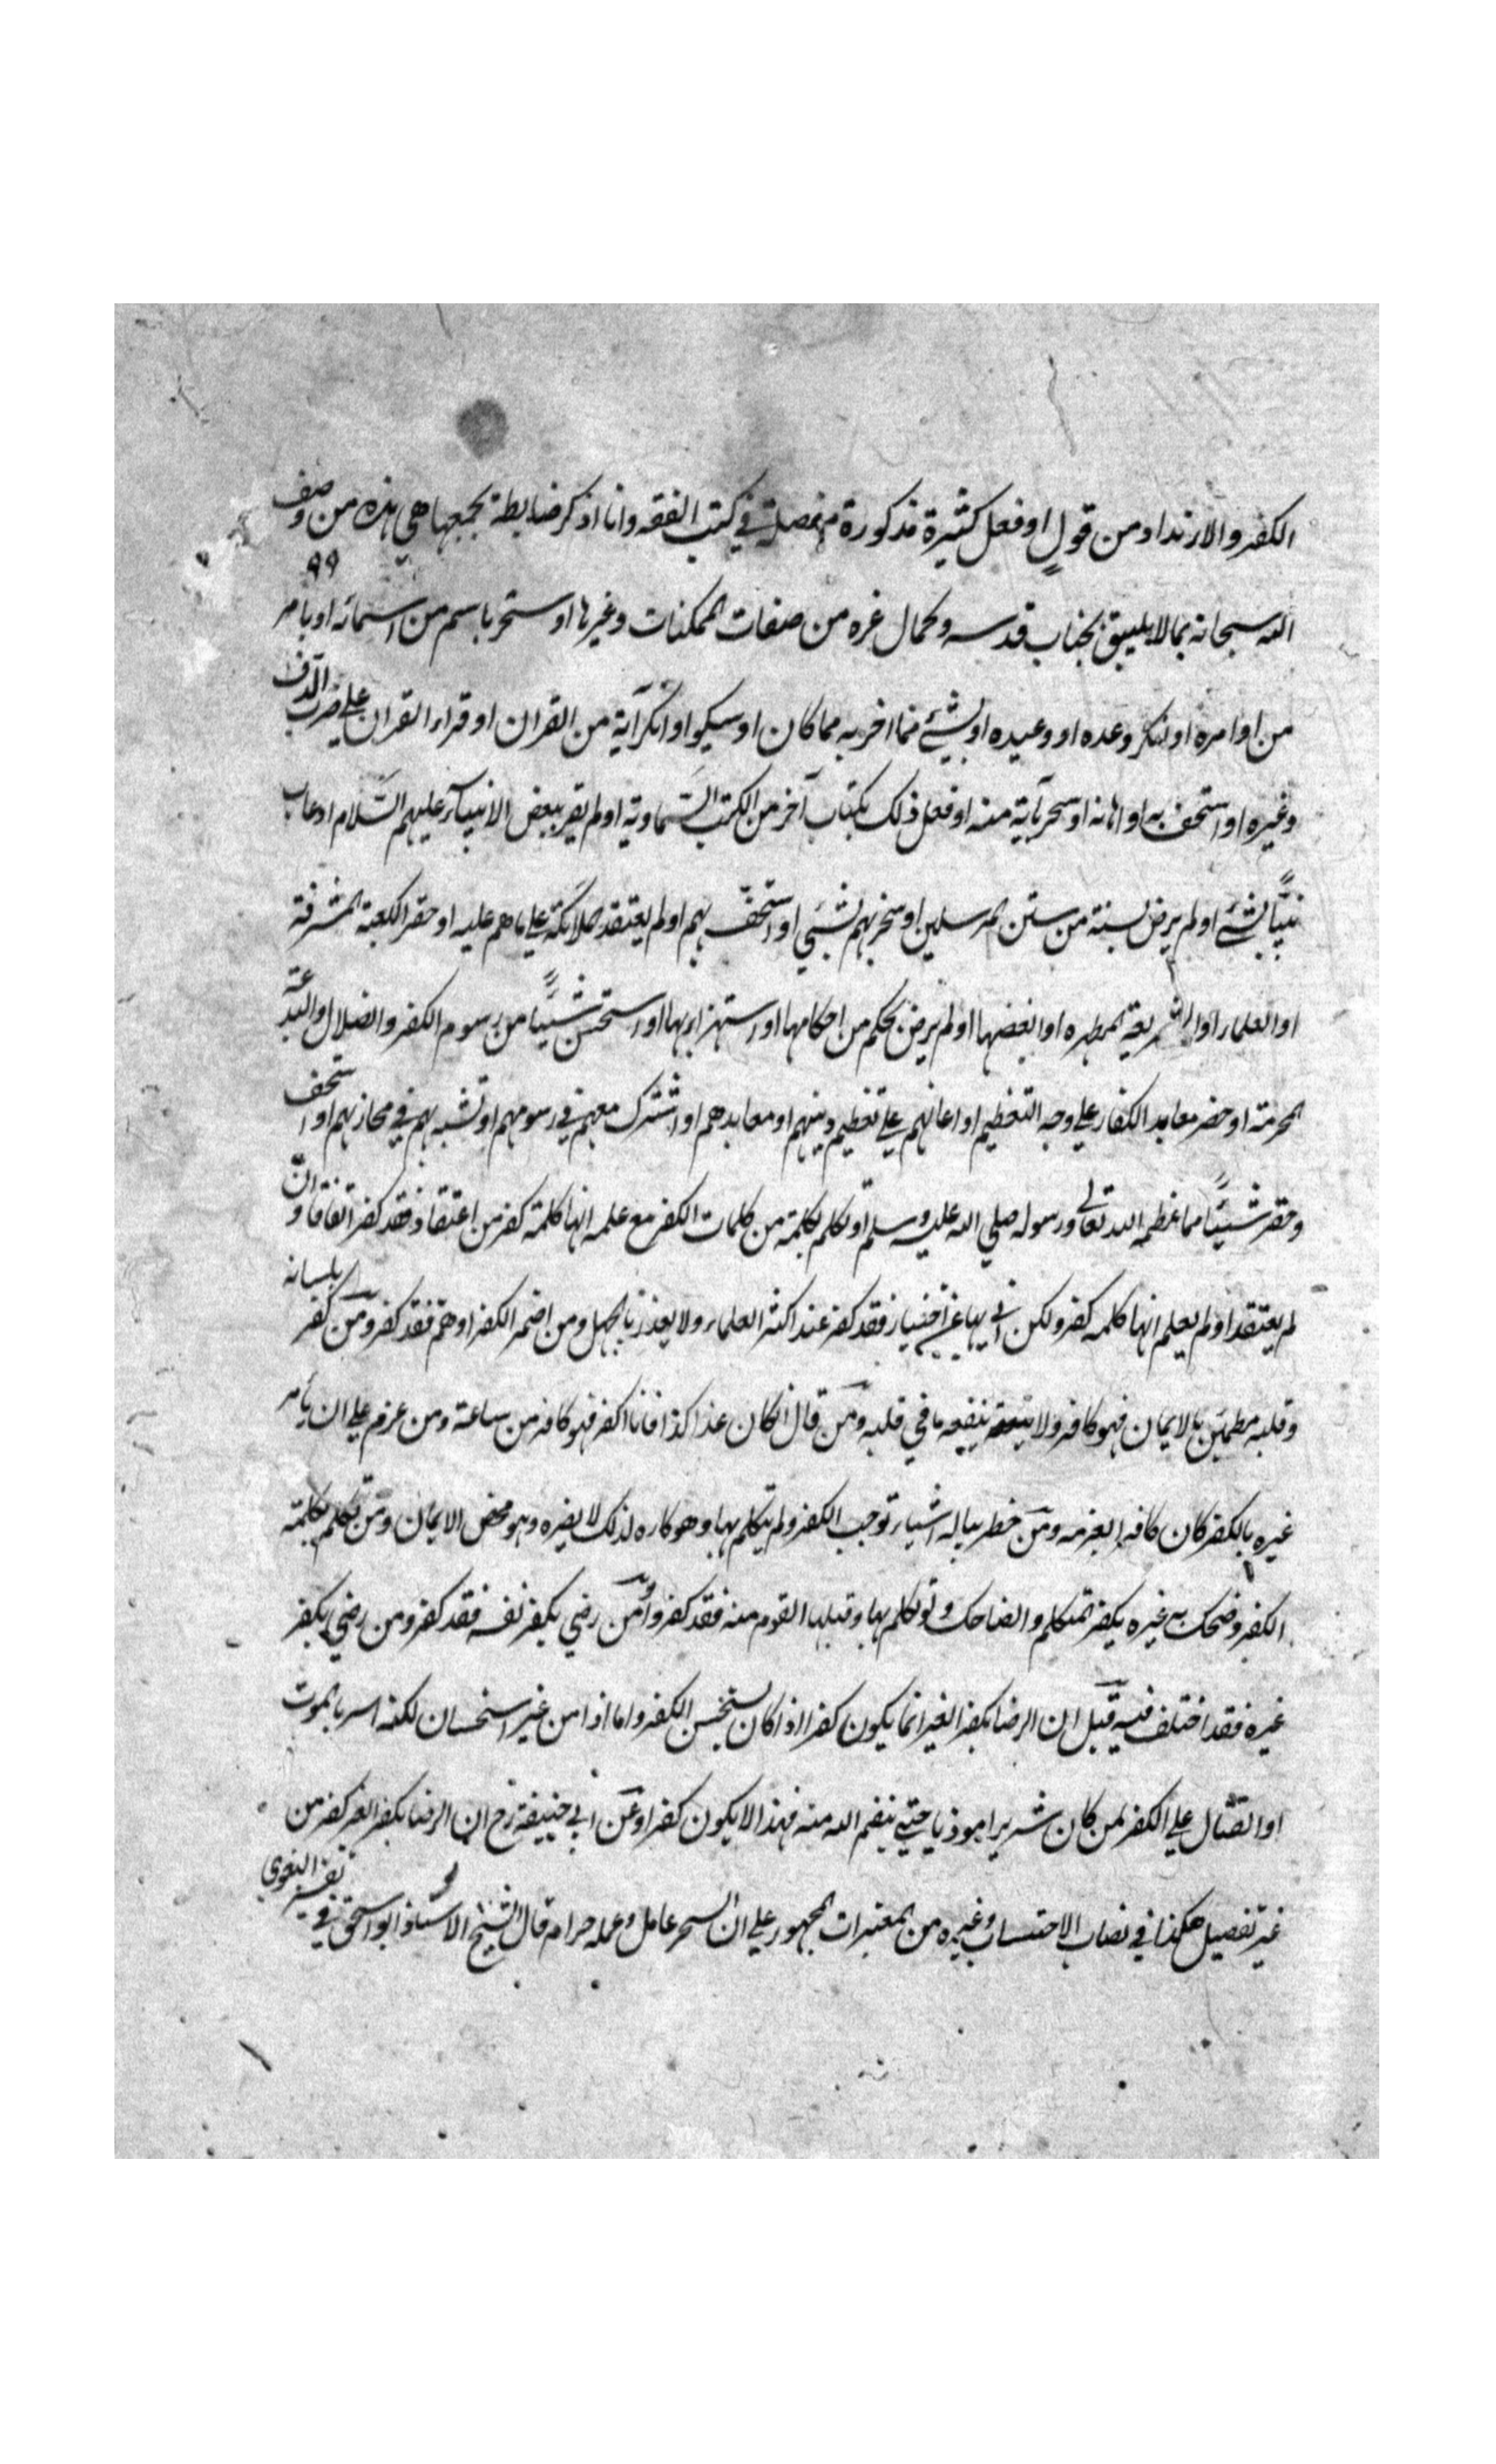 الكفر والارتداد من قول او فعل كثيرة مذكورة مفصلة في كتب الفقه وانا اذكر ضابطة تجمعها هي هذه من وصف
٩٩
الله سبحانه بما لا يليق بجناب قدسه وكمال عزه من صفات الممكنات وغيرها او سخر باسم من اسمائه او بامر
من اوامره او انكر وعده او وعيده او بشيء مما اخبر به مما كان او سيكو او انكر آية من القران او قراء القران على ضرب الدف
وغيره او استخف به او اهانه او سخر بآية منه او فعل ذلك بكتاب آخر من الكتب السماوية او لم يقر ببعض الانبيآء عليهم السلام او عاب
نبيًّا بشئ او لم يرض بسنة من سنن المرسلين او سخر بهم بشيء او استخف بهم او لم يعتقد ملائكة على ما هم عليه او حقر الكعبة المشرفة
او العلماء او الشريعة المطهره او ابغضها او لم يرض بحكم من احكامها او استهزاء بها او استحسن شيئًا من رسوم الكفر والضلال والبدعة
المحرمة او حضر معابد الكفار على وجه التعظيم او اعانهم على تعظيم دينهم او معابدهم او اشترك معهم في رسومهم او تشبه بهم في محازبهم او استخف
وحقر شيئًا مما عظمه الله تعالى ورسوله صلي الله عليه وسلم او تكلم بكلمة من كلمات الكفر مع علمه انها كلمة كفر من اعتقاد فقد كفر اتفاقا وانّ
لم يعتقد او لم يعلم انها كلمه كفر ولكن اتي بها عن اختيار فقد كفر عند اكثر العلماء ولا يعذر بالجهل ومن اضمر الكفر او هم فقد كفر ومن كفر بلسانه
وقلبه مطمئن بالايمان فهو كافر ولا ينفعه ما في قلبه ومن قال ان كان غدا كذا فانا اكفر فهو كافر من ساعة ومن عزم على ان يأمر
غيره بالكفر كان كافرا بعزمه ومن خطر بباله اشياء توجب الكفر ولم يتكلم بها وهو كاره لذلك لا يضره وهو محض الايمان ومن تكلم بكلمة
الكفر وضحك به غيره يكفر المتكلم والضاحك ولو تكلم بها وقبلها القوم منه فقد كفروا ومن رضي بكفر نفسه فقد كفر ومن رضي بكفر
غيره فقد اختلف فيه قيل ان الرضا بكفر الغير انما يكون كفرا اذا كان يستحسن الكفر واما اذا من غير استحسان لكنه اسر بالموت
او القتال على الكفر لمن كان شريرا موذيا حتي ينقم الله منه فهذا لا يكون كفرا وعن ابي حنيفة رح ان الرضا بكفر الغير كفر من
غير تفصيل هكذا في نصاب الاحتساب وغيره من المعتبرات الجمهور على ان السحر عامل وعمله حرام قال الشيخ الاستاذ ابو اسحق في تفسير البغوي